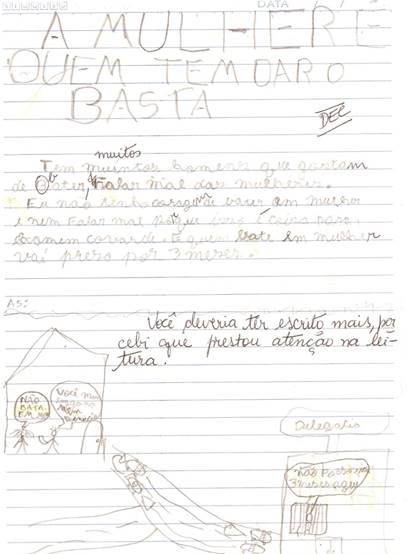 DATA / /
A MULHER É
QUEM TEM DAR O
BASTA
DEC
muitos
Tem muintos homens que gostam
de Bater, Falar mal das mulheres.
Eu não tenho coragem de bater em mulher
e nem Falar mal porque isso é coisa para
homem covarde. E quem bate em mulher
vai preso por 3 meses.
AS:
Você deveria ter escrito mais, per
cebi que prestou atenção na lei-
tura.
NÃO
BATA
EM
Você me
Delegacia
não Posso
3 meses aqui